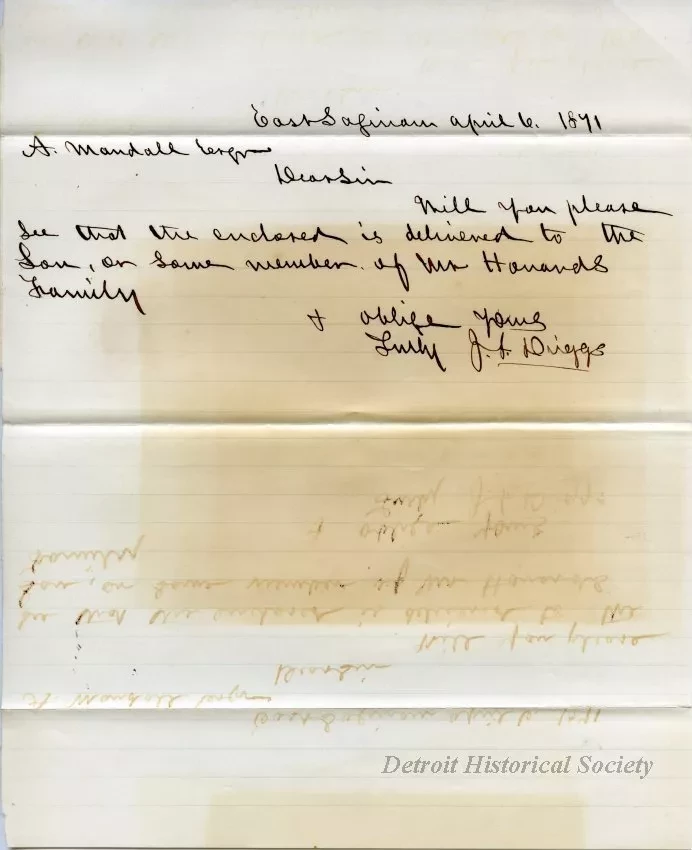 East Saginaw April 6. 1871
A. Mandall Esqr
Dear Sir
Will you please
see that the enclosed is delivered to the
Son, or some member of Mr Howards
Family
+ oblige yours
Truly J. F. Driggs
Detroit Historical Society